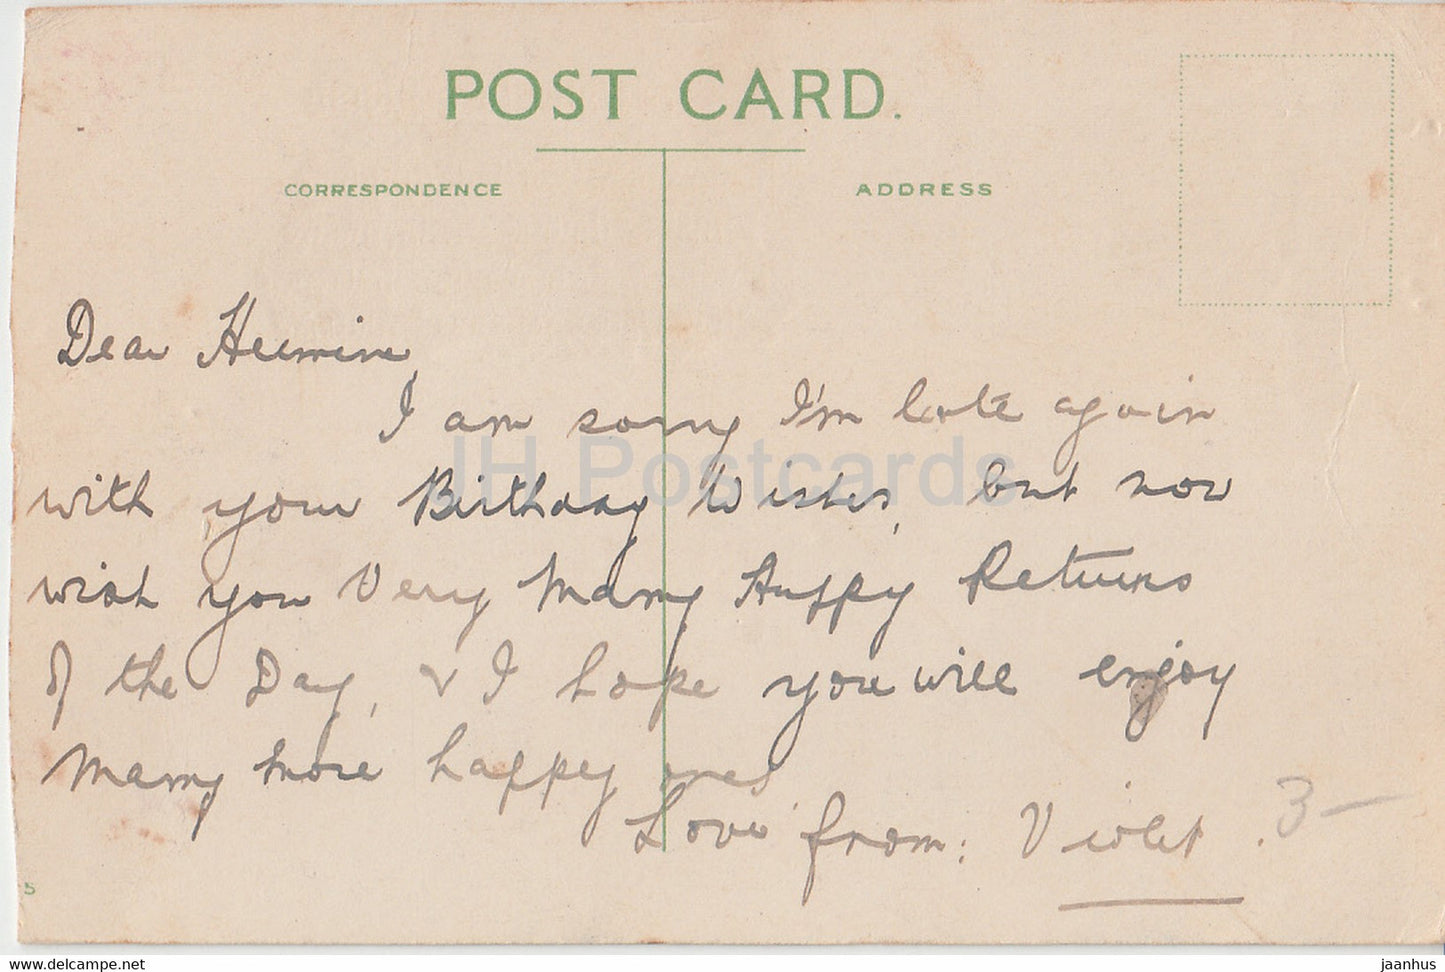 POST CARD.
CORRESPONDENCE
ADDRESS
Dear Hermine,
I am sorry I'm late again
with your Birthday Wishes, but now
wish you Very Many Happy Returns
of the Day, & I hope you will enjoy
Many more happy ones.
Love from: Violet.
3-
5
JH Postcards
www.delcampe.net
jaanhus